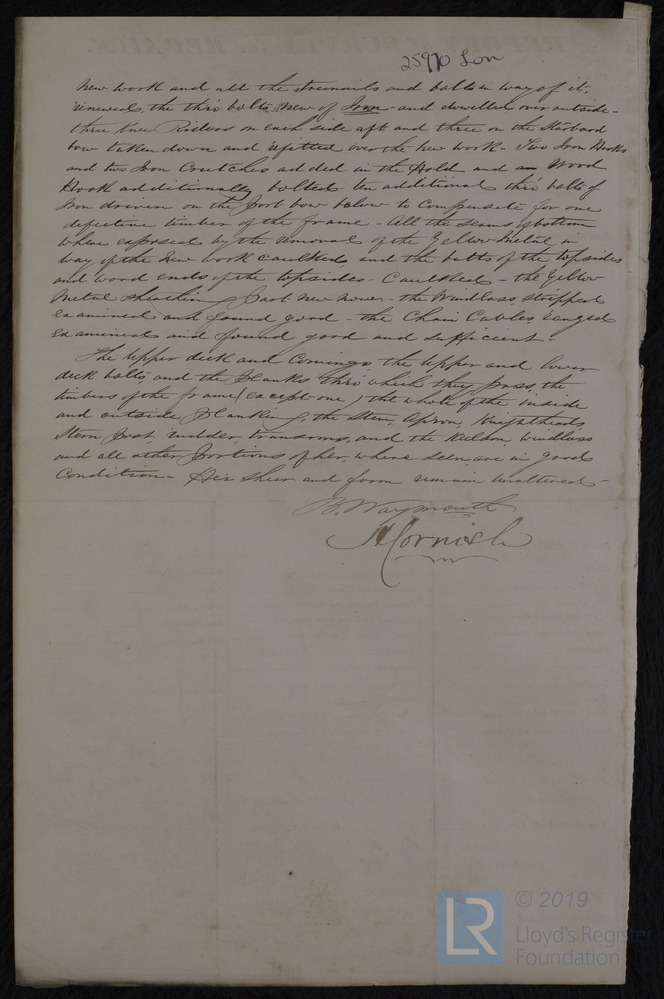 25970 Lon
New work and all the treenails and bolts in way of it,
renewed, the thro bolts new of Iron - and dowelled over outside -
three Knee Riders on each side aft and three on the Starboard
bow taken down and refitted over the New work - Two Iron Hooks
and two Iron Crutches added in the Hold and a Wood
Hook additionally bolted. Ten additional thro bolts of
Iron driven on the Port bow below to Compensate for one
defective timber of the frame - All the seams of bottom
where exposed by the removal of the Yellow Metal, in
way of the New work caulked, and the butts of the topsides
and wood ends of the topsides - Caulked - the Yellow
Metal sheathing Part new now - the Windlass, stripped
examined and found good - the Chain Cables ranged
examined and found good and sufficient -
The Upper deck and Comings, the Upper and lower
deck bolts, and the Planks thro' which they pass, the
timbers of the frame (except one) the whole of the inside
and outside Planking, the Stem, Apron, Knightheads,
Stern Post, rudder, transoms, and the Keelson, windlass
and all other Portions of her, where seen are in good
Condition - Her Sheer and form remain Unaltered -
B. Waymouth
H Cornish
© 2019
LR
Lloyd's Register
Foundation